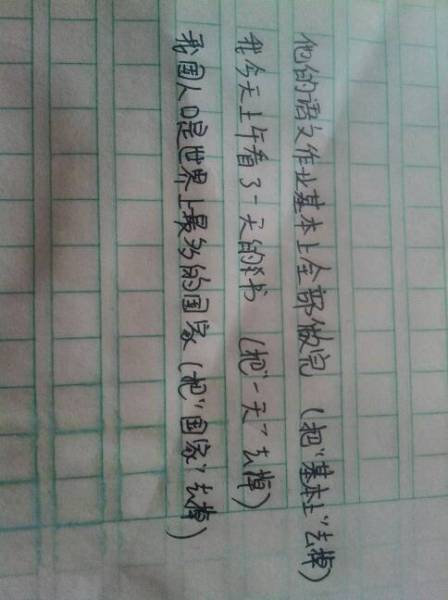 他的语文作业基本上全部做完（把"基本上"去掉）
我今天上午看了一天的书（把"一天"去掉）
我国人口是世界上最多的国家（把"国家"去掉）